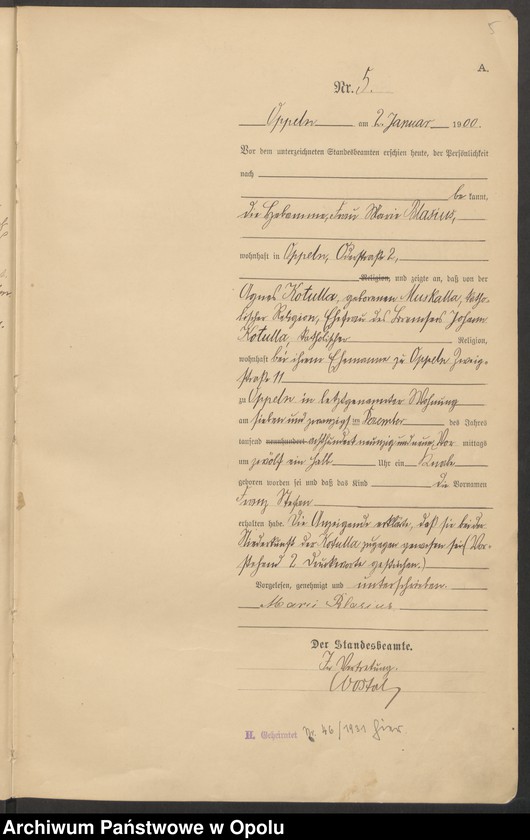 5
A.
Nr. 5.
Oppeln am 2. Januar 1900.
Vor dem unterzeichneten Standesbeamten erschien heute, der Persönlichkeit
nach
bekannt,
die Hebamme, Frau Marie Blasius,
wohnhaft in Oppeln, Oderstraße 2,
Religion, und zeigte an, daß von der
Agnes Kotulla, geborenen Muskalla, katho-
lischer Religion, Ehefrau des Bremsers Johann
Kotulla, katholischer Religion,
wohnhaft bei ihrem Ehemanne zu Oppeln Zweig-
straße 11
zu Oppeln in letztgenannter Wohnung
am sieben und zwanzigsten Dezember des Jahres
tausend neunhundert achthundert neunzig und neun Vor mittags
um zwölf ein halb Uhr ein Knabe
geboren worden sei und daß das Kind die Vornamen
Franz Stefan
erhalten habe. Die Anzeigende erklärte, daß sie bei der
Niederkunft der Kotulla zugegen gewesen sei (Vor-
stehend 2 Druckworte gestrichen.)
Vorgelesen, genehmigt und unterschrieben.
Marie Blasius
Der Standesbeamte.
In Vertretung.
Wostal
H. Geheiratet Nr. 46/1931 hier.
Archiwum Państwowe w Opolu